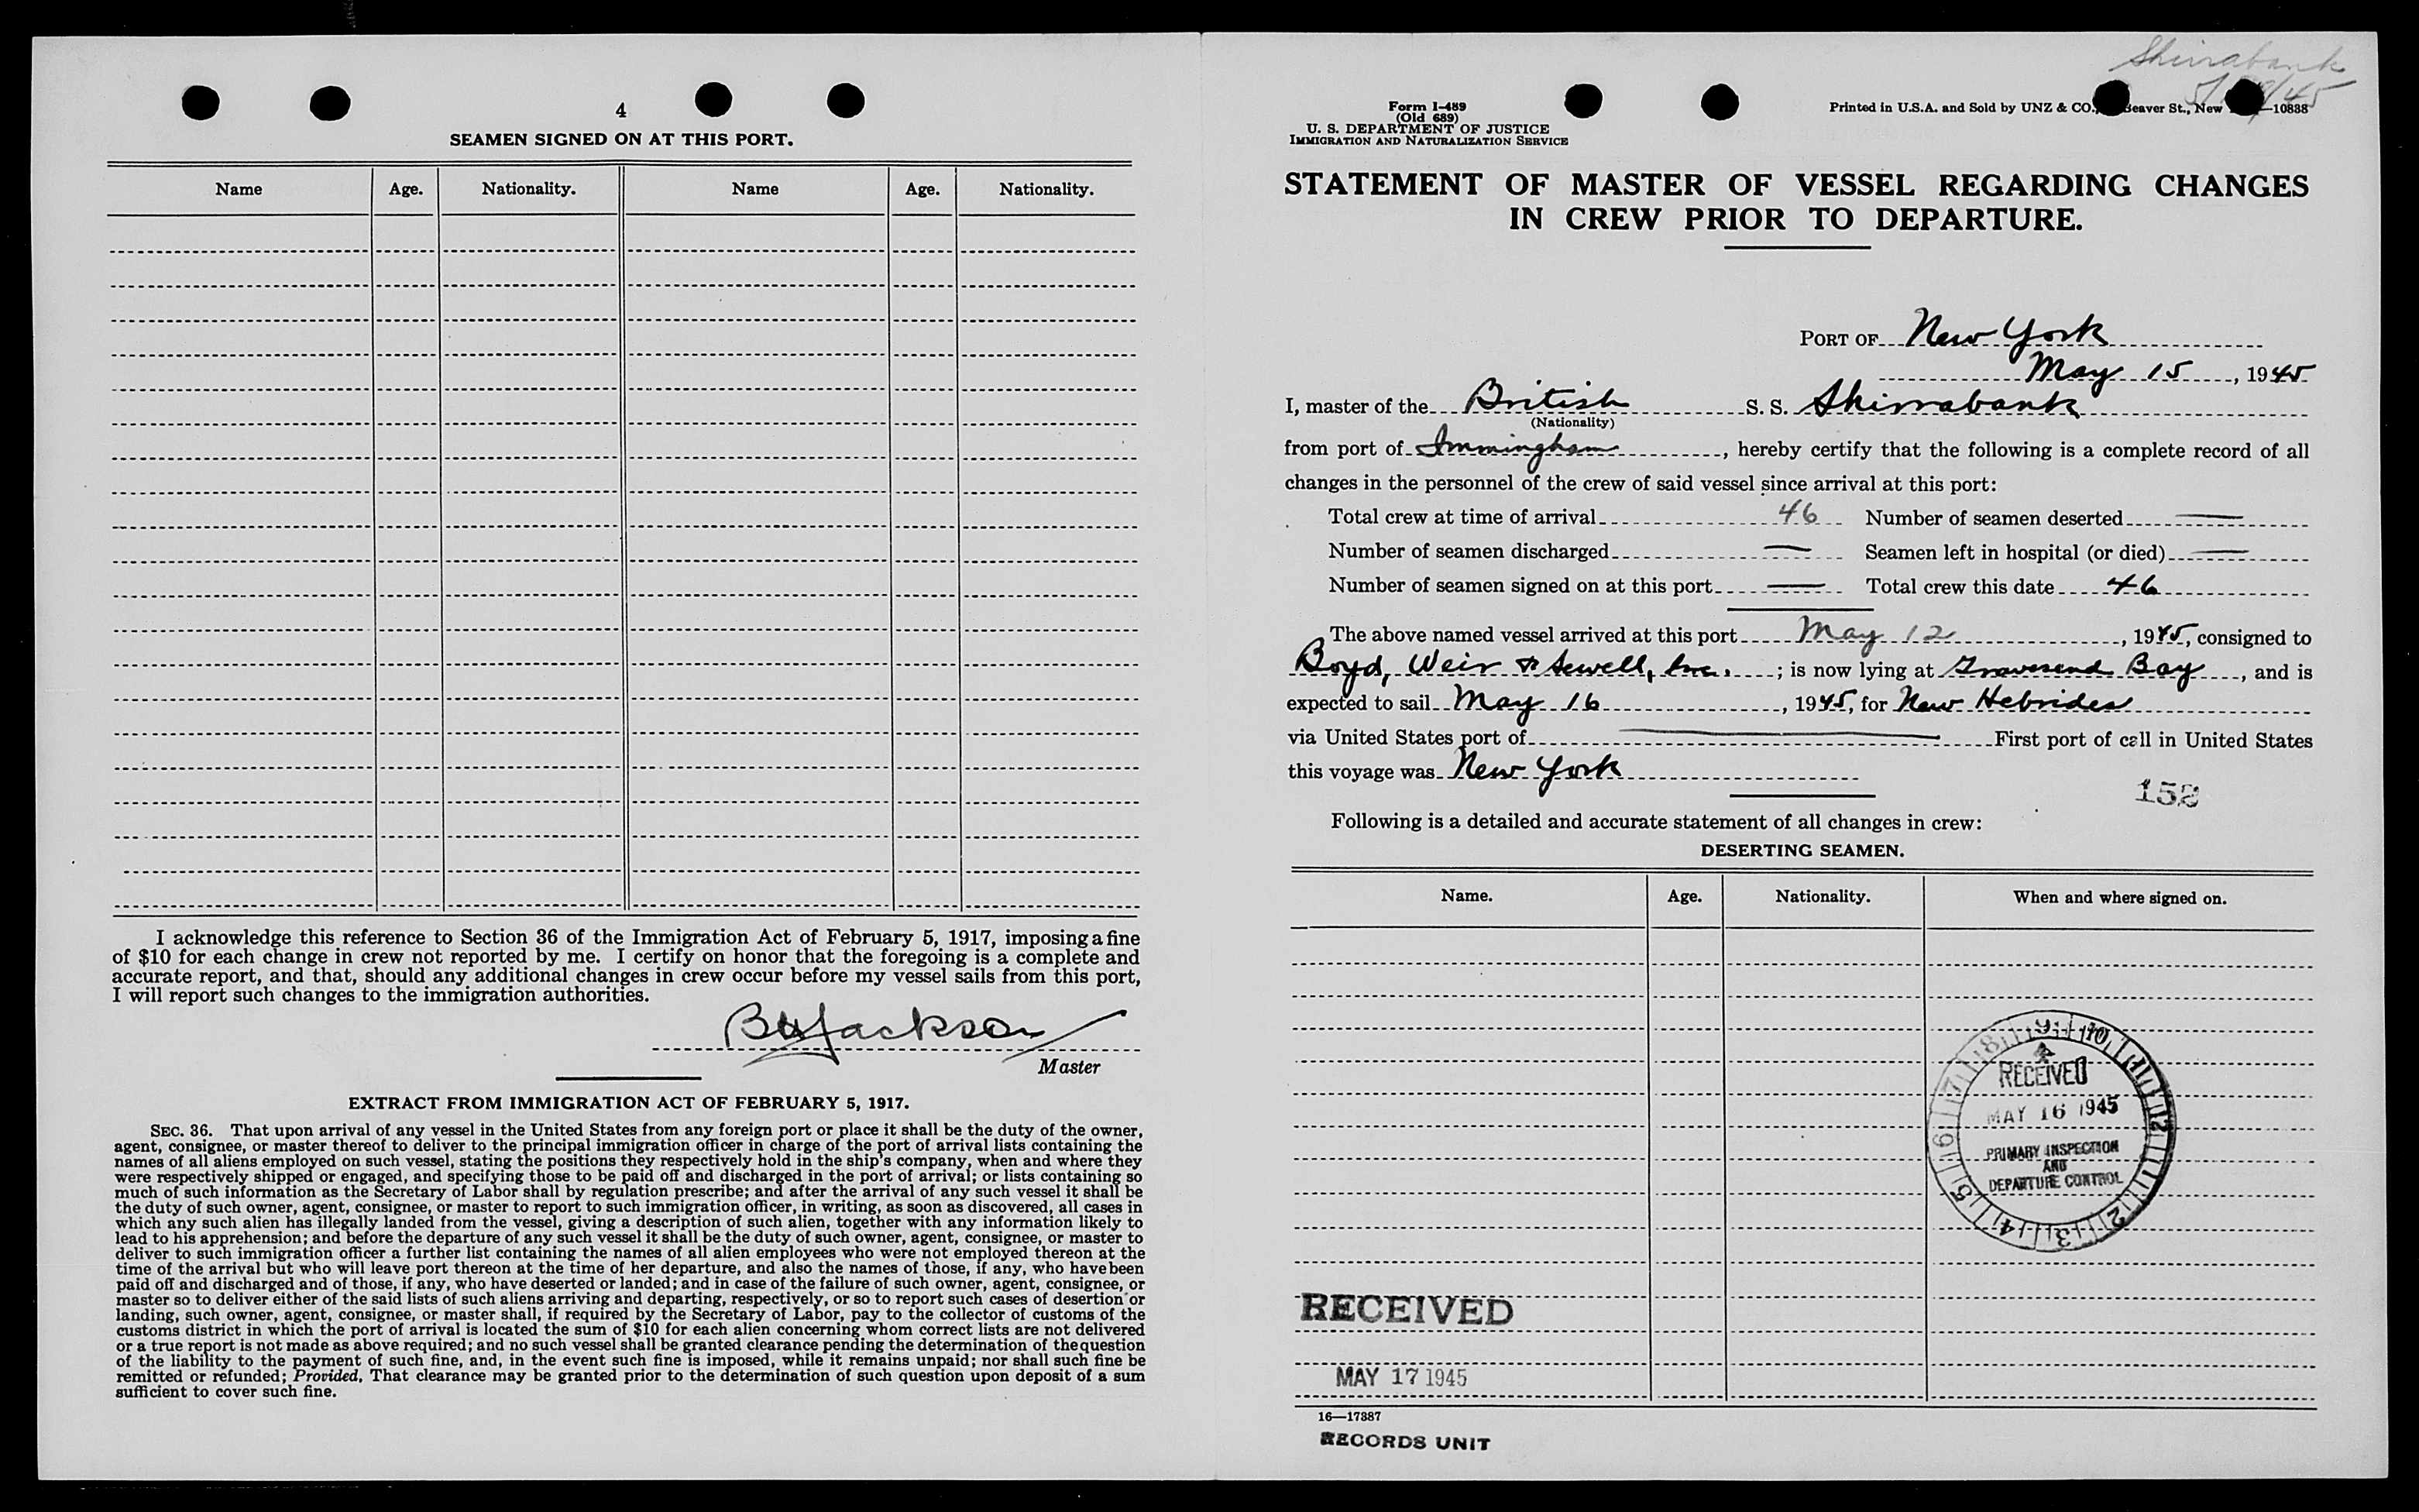 4
SEAMEN SIGNED ON AT THIS PORT.
Name Age. Nationality. Name Age. Nationality.
I acknowledge this reference to Section 36 of the Immigration Act of February 5, 1917, imposing a fine
of $10 for each change in crew not reported by me. I certify on honor that the foregoing is a complete and
accurate report, and that, should any additional changes in crew occur before my vessel sails from this port,
I will report such changes to the immigration authorities.
BHJackson
Master
EXTRACT FROM IMMIGRATION ACT OF FEBRUARY 5, 1917.
SEC. 36. That upon arrival of any vessel in the United States from any foreign port or place it shall be the duty of the owner,
agent, consignee, or master thereof to deliver to the principal immigration officer in charge of the port of arrival lists containing the
names of all aliens employed on such vessel, stating the positions they respectively hold in the ship's company, when and where they
were respectively shipped or engaged, and specifying those to be paid off and discharged in the port of arrival; or lists containing so
much of such information as the Secretary of Labor shall by regulation prescribe; and after the arrival of any such vessel it shall be
the duty of such owner, agent, consignee, or master to report to such immigration officer, in writing, as soon as discovered, all cases in
which any such alien has illegally landed from the vessel, giving a description of such alien, together with any information likely to
lead to his apprehension; and before the departure of any such vessel it shall be the duty of such owner, agent, consignee, or master to
deliver to such immigration officer a further list containing the names of all alien employees who were not employed thereon at the
time of the arrival but who will leave port thereon at the time of her departure, and also the names of those, if any, who have been
paid off and discharged and of those, if any, who have deserted or landed; and in case of the failure of such owner, agent, consignee, or
master so to deliver either of the said lists of such aliens arriving and departing, respectively, or so to report such cases of desertion or
landing, such owner, agent, consignee, or master shall, if required by the Secretary of Labor, pay to the collector of customs of the
customs district in which the port of arrival is located the sum of $10 for each alien concerning whom correct lists are not delivered
or a true report is not made as above required; and no such vessel shall be granted clearance pending the determination of the question
of the liability to the payment of such fine, and, in the event such fine is imposed, while it remains unpaid; nor shall such fine be
remitted or refunded; Provided, That clearance may be granted prior to the determination of such question upon deposit of a sum
sufficient to cover such fine.
Shirrabank
Form I-489
(Old 689)
U. S. DEPARTMENT OF JUSTICE
IMMIGRATION AND NATURALIZATION SERVICE
Printed in U.S.A. and Sold by UNZ & CO., Beaver St., New —10838
STATEMENT OF MASTER OF VESSEL REGARDING CHANGES
IN CREW PRIOR TO DEPARTURE.
PORT OF New York
May 15, 1945
I, master of the British S. S. Shirrabank
(Nationality)
from port of Immingham, hereby certify that the following is a complete record of all
changes in the personnel of the crew of said vessel since arrival at this port:
Total crew at time of arrival 46 Number of seamen deserted —
Number of seamen discharged — Seamen left in hospital (or died) —
Number of seamen signed on at this port — Total crew this date 46
The above named vessel arrived at this port May 12, 1945, consigned to
Boyd, Weir & Sewell, Inc.; is now lying at Gravesend Bay, and is
expected to sail May 16, 1945, for New Hebrides
via United States port of — First port of call in United States
this voyage was New York
152
Following is a detailed and accurate statement of all changes in crew:
DESERTING SEAMEN.
Name. Age. Nationality. When and where signed on.
9 10 11 12 1 2 3 4 5 6 7 8
RECEIVED
MAY 16 1945
PRIMARY INSPECTION
AND
DEPARTURE CONTROL
RECEIVED
MAY 17 1945
16—17887
RECORDS UNIT